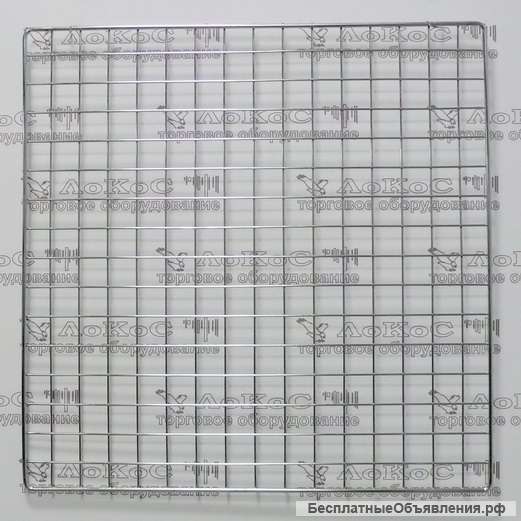 ЛоКоС ЛоКоС
торговое оборудование торговое оборудование
ЛоКоС ЛоКоС
торговое оборудование торговое оборудование
ЛоКоС ЛоКоС
торговое оборудование торговое оборудование
ЛоКоС ЛоКоС
торговое оборудование торговое оборудование
ЛоКоС ЛоКоС
торговое оборудование торговое оборудование
ЛоКоС ЛоКоС
торговое оборудование торговое оборудование
ЛоКоС ЛоКоС
БесплатныеОбъявления.рф